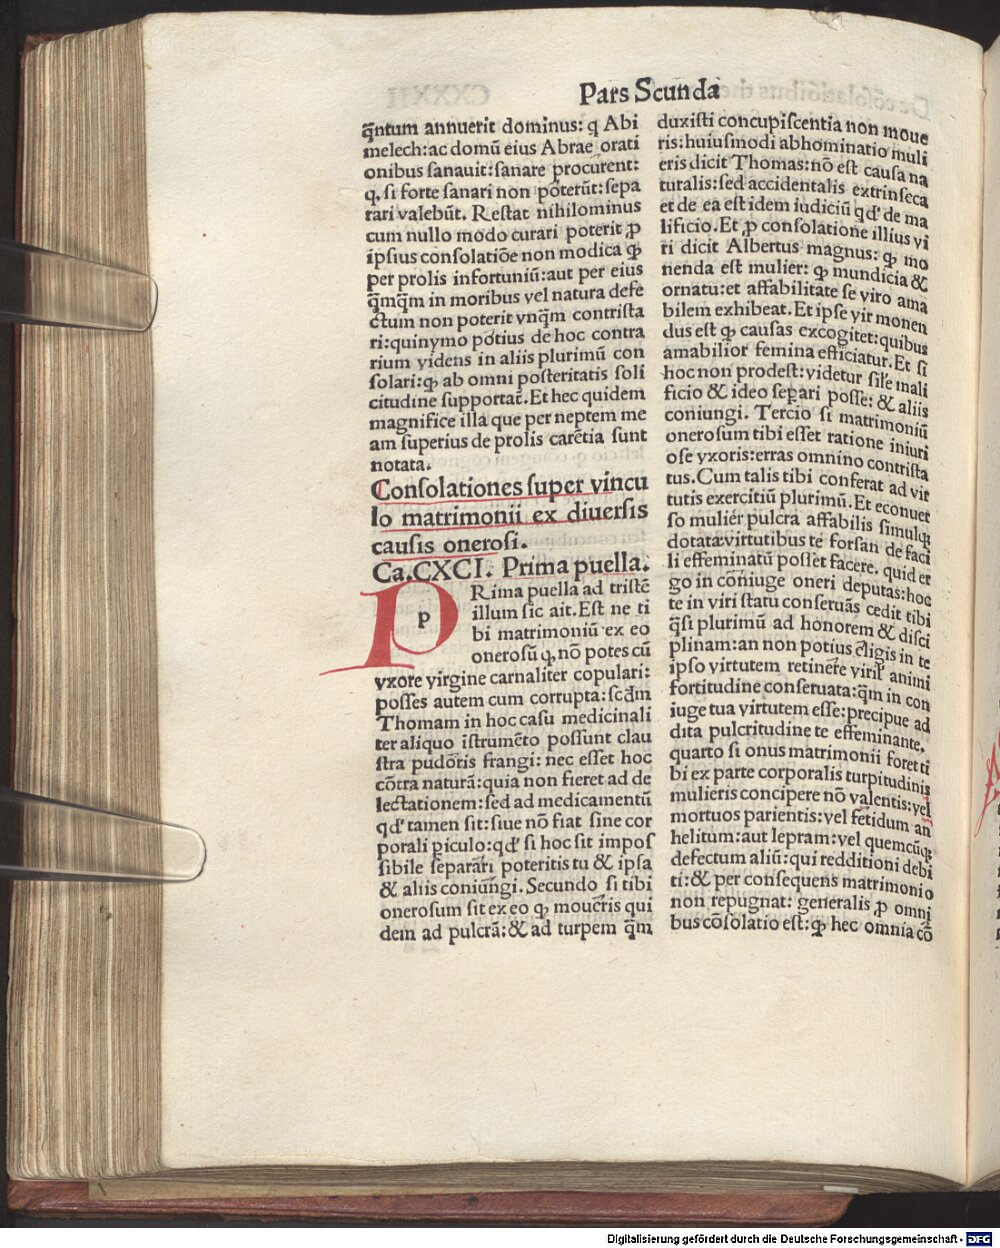 Pars Scunda
q̄ntum annuerit dominus: q̨ Abi
melech: ac domū eius Abrae orati
onibus sanauit: sanare procurent:
q̨, si forte sanari non poterūt: sepa
rari valebūt. Restat nihilominus
cum nullo modo curari poterit ꝓ
ipsius consolatiōe non modica ꝙ
per prolis infortuniū: aut per eius
q̄mq̄m in moribus vel natura defe
ctum non poterit vnq̄m contrista
ri: quinymo potius de hoc contra
rium videns in aliis plurimū con
solari: ꝙ ab omni posteritatis soli
citudine supportat̄. Et hec quidem
magnifice illa que per neptem me
am superius de prolis carētia sunt
notata.
Consolationes super vincu
lo matrimonii ex diuersis
causis onerosi.
Ca. CXCI. Prima puella.
p
PRima puella ad tristē
illum sic ait. Est ne ti
bi matrimoniū ex eo
onerosū q̨, nō potes cū
yxore virgine carnaliter copulari:
posses autem cum corrupta: scd̄m
Thomam in hoc casu medicinali
ter aliquo īstrumēto possunt clau
stra pudoris frangi: nec esset hoc
cōtra naturā: quia non fieret ad de
lectationem: sed ad medicamentū
qd' tamen sit: siue nō fiat sine cor
porali piculo: qd' si hoc sit impos
sibile separari poteritis tu & ipsa
& aliis coniungi. Secundo si tibi
onerosum sit ex eo q̨ moueris qui
dem ad pulcrā: & ad turpem q̄m
duxisti concupiscentia non moue
ris: huiusmodi abhominatio muli
eris dicit Thomas: nō est causa na
turalis: sed accidentalis extrinseca
et de ea est idem iudiciū qd' de ma
lificio. Et ꝓ consolatione illius vi
ri dicit Albertus magnus: ꝙ mo
nenda est mulier: ꝙ mundicia &
ornatu: et affabilitate se viro ama
bilem exhibeat. Et ipse vir monen
dus est ꝙ causas excogitet: quibus
amabilior femina efficiatur. Et si
hoc non prodest: videtur sil'e mali
ficio & ideo separi posse: & aliis
coniungi. Tercio si matrimoniū
onerosum tibi esset ratione iniuri
ose yxoris: erras omnino contrista
tus. Cum talis tibi conferat ad vir
tutis exercitiū plurimū. Et econuer
so mulier pulcra affabilis simulꝙ
dotata virtutibus te forsan de faci
li effeminatū posset facere. quid er
go in coniuge oneri deputas: hoc
te in viri statu conseruās cedit tibi
q̄si plurimū ad honorem & disci
plinam: an non potius eligis in te
ipso virtutem retinere viril' animi
fortitudine conseruata: q̄m in con
iuge tua virtutem esse: precipue ad
dita pulcritudine te effeminante.
quarto si onus matrimonii foret ti
bi ex parte corporalis turpitudinis
mulieris concipere nō valentis: vel
mortuos parientis: vel fetidum an
helitum: aut lepram: vel quemcūꝙ
defectum aliū: qui redditioni debi
ti: & per consequens matrimonio
non repugnat: generalis ꝓ omni
bus cōsolatio est: ꝙ hec omnia cō
Digitalisierung gefördert durch die Deutsche Forschungsgemeinschaft - DFG